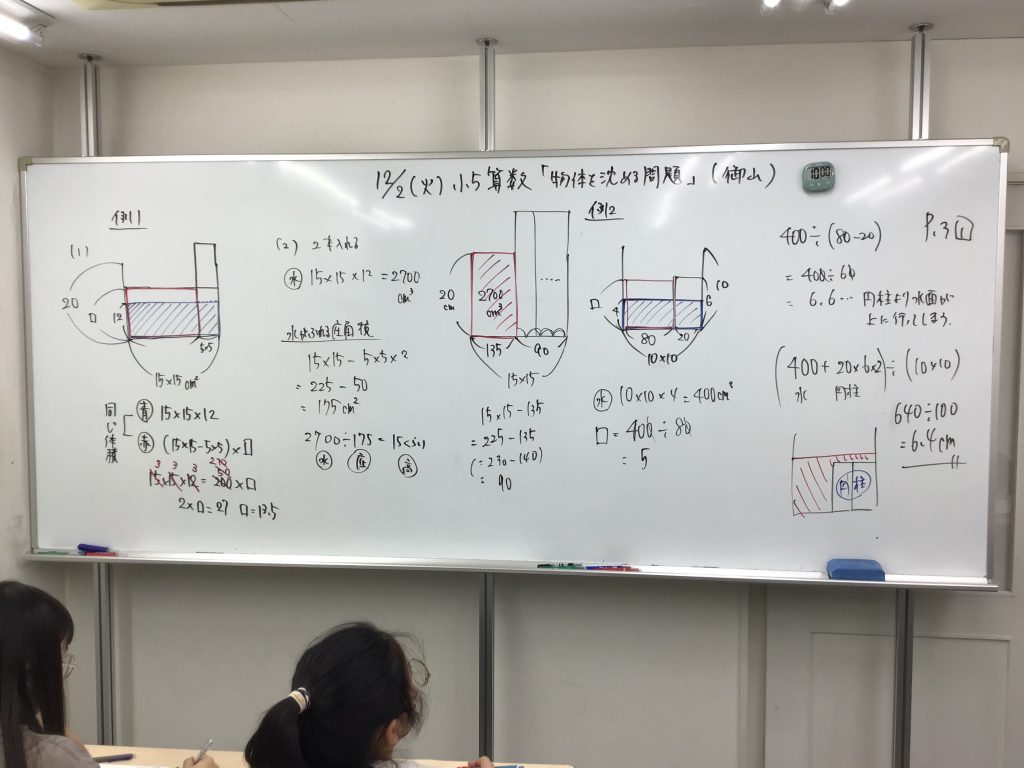 12/2(火) 小5算数「物体を沈める問題」(御山)
10:00
例1
(1)
20
□
12
5×5
15×15cm²
同じ体積
青 15×15×12
赤 (15×15-5×5)×□
15×15×12=200×□
3 3 3
50
2×□=27 □=13.5
(2) 2本入れる
水 15×15×12=2700
cm³
底面積
15×15-5×5×2
=225-50
=175cm²
2700÷175=15.
水 底 高
20
cm
2700
cm³
.....
135
90
15×15
15×15-135
=225-135
(=230-140)
=90
例2
□
4
10
6
80
20
10×10
水 10×10×4=400cm³
□=400÷80
=5
400÷(80-20)
P.3 1
=400÷60
=6.6… 円柱より水面が
上に行ってしまう.
(400+20×6×2)÷(10×10)
水 円柱
640÷100
=6.4cm
円柱